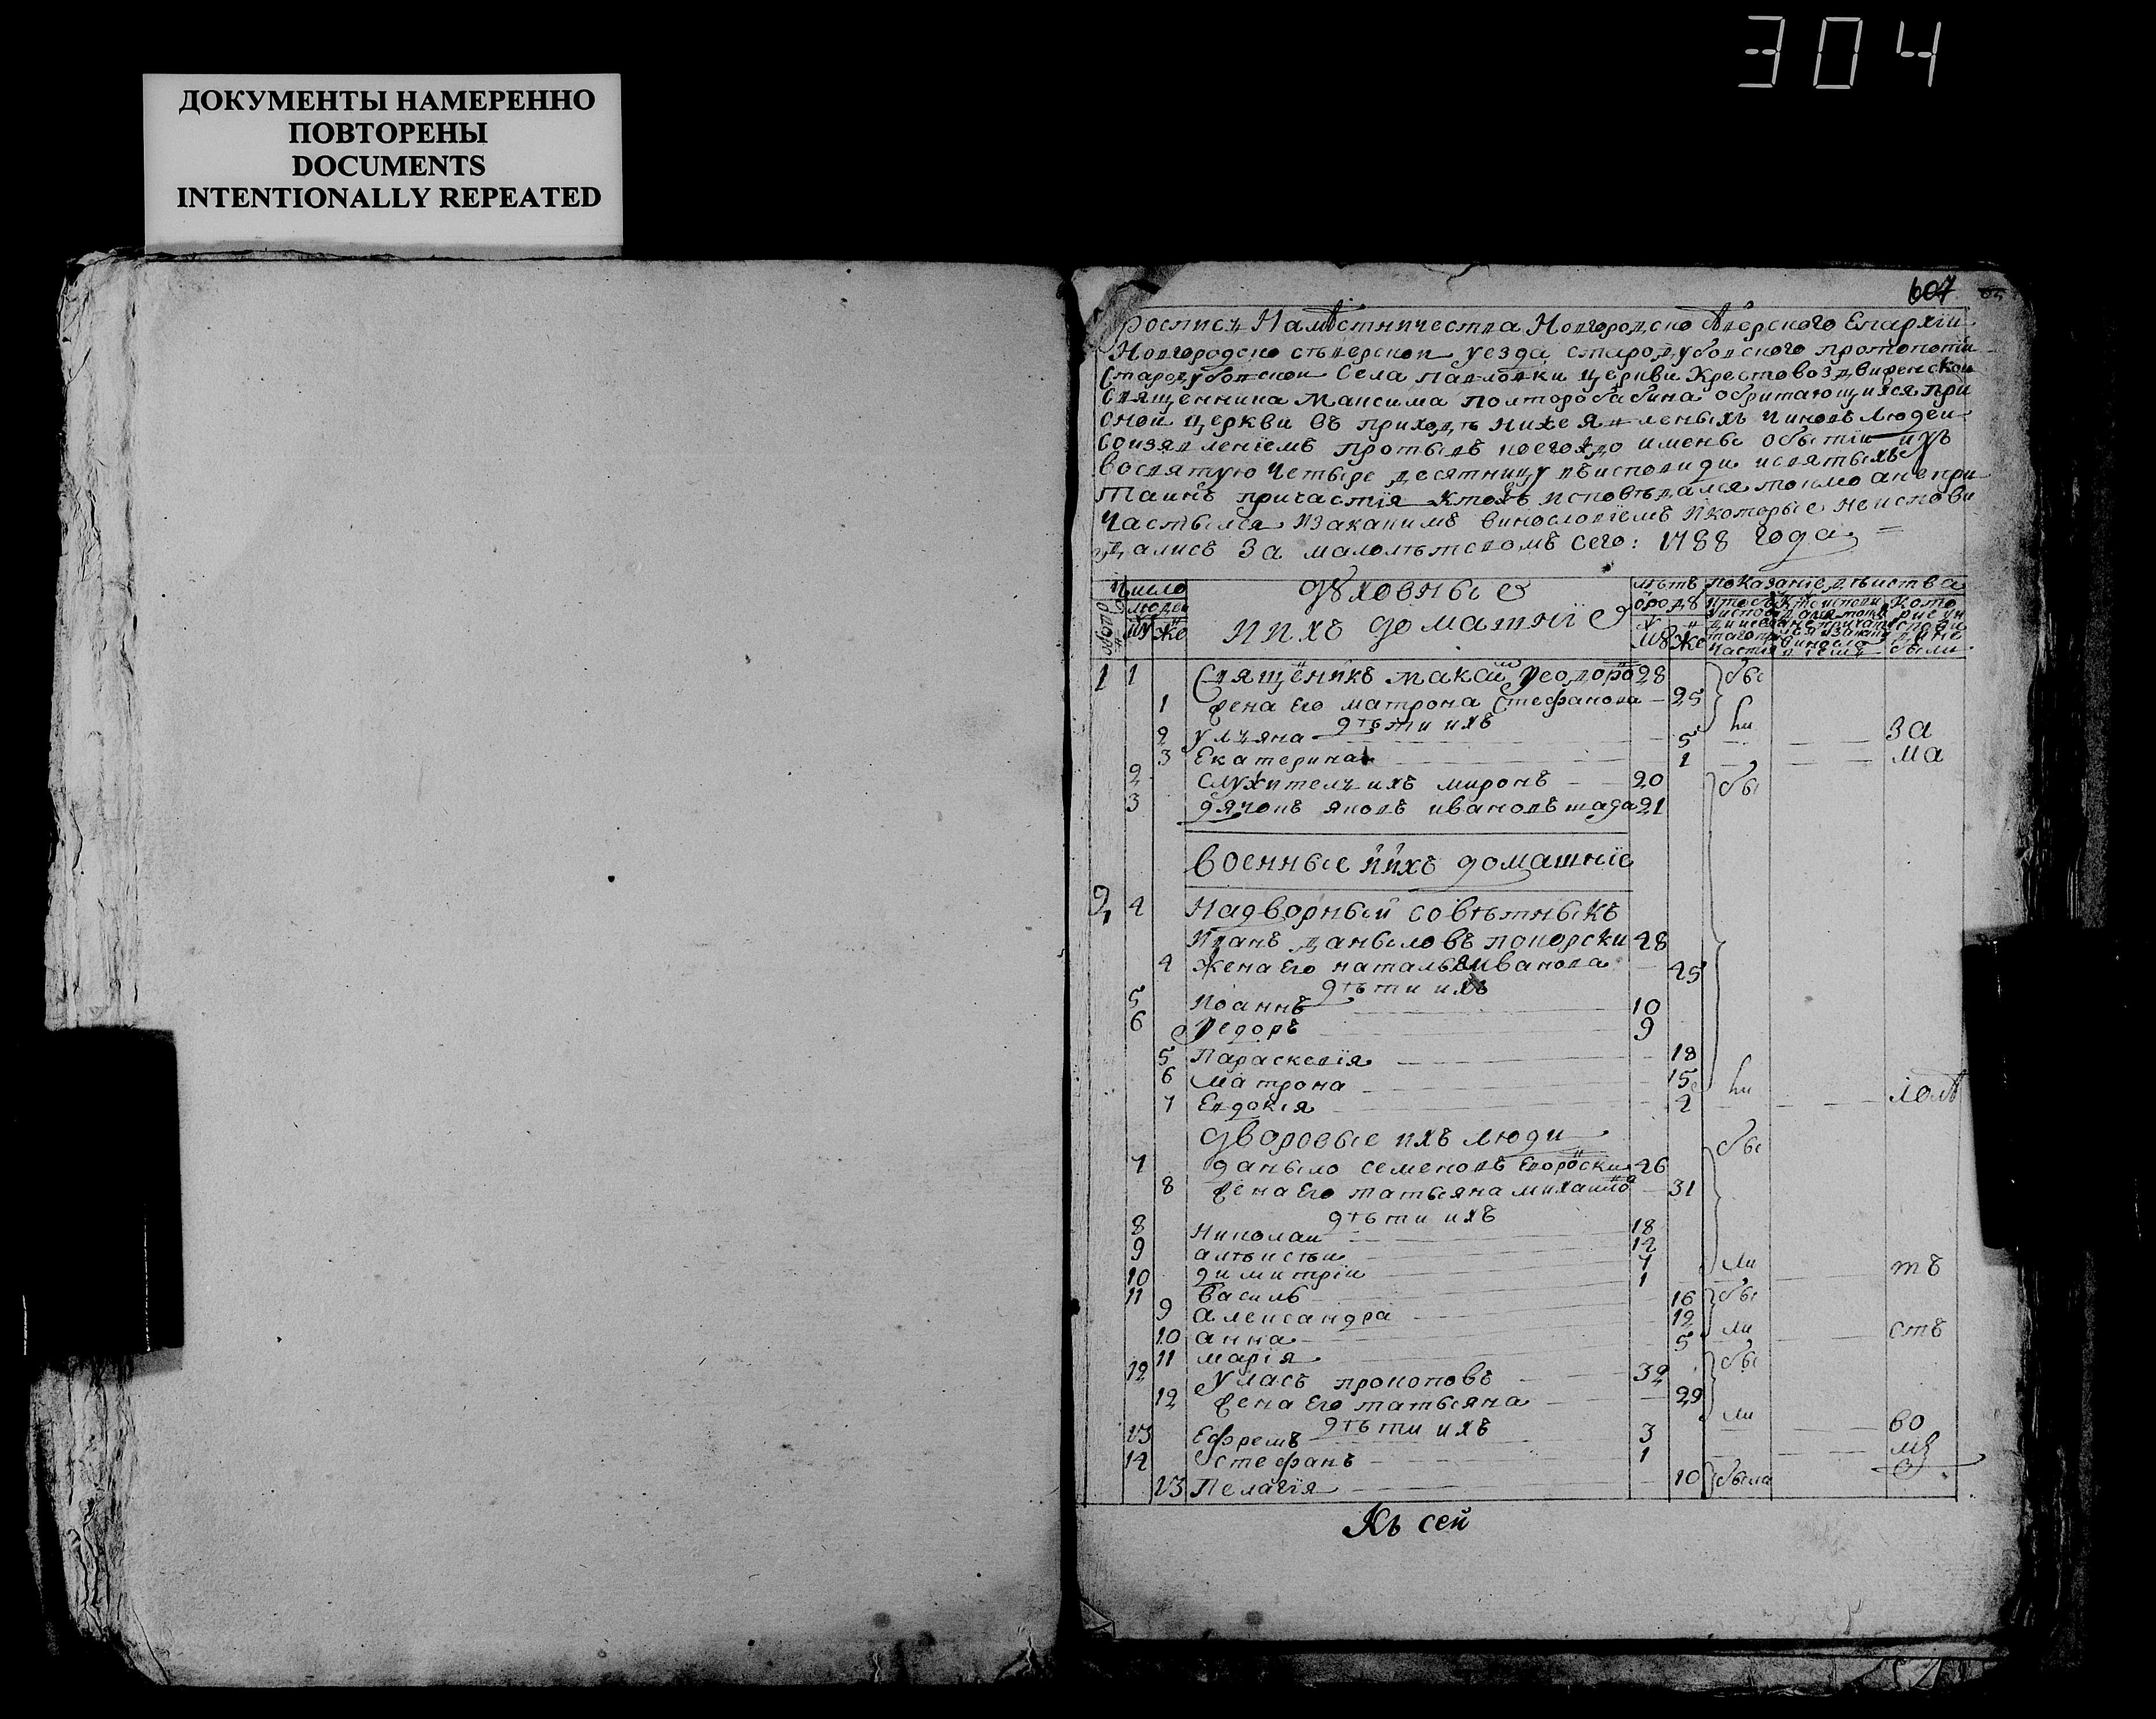 304
ДОКУМЕНТЫ НАМЕРЕННО
ПОВТОРЕНЫ
DOCUMENTS
INTENTIONALLY REPEATED
607
роспись Намѣстничества Новгородско сѣверского Епархіи
Новгородско сѣверскои уезда стародубовского протопопіи
стародубовскои Села павловки церкви Крестовоздвиженскои
Священника максима полторобабина обритающихся при
оной церкви въ приходѣ ниже явленыхъ чиновъ людеи
Соизявленіемъ противъ коегождо именъ обытіи ихъ
Восвятую четыредесятницу въисповиди исвятыхъ
таинъ причастія Ктожъ исповѣдался токмо анепри
частылся изакакимъ винословіемъ икоторые неиспови
дались За малолѣтсвомъ Сего: 1788 года =
Число
людеи
муж же
духовные
иихъ домашніе
лѣтъ
ороду
му же
показаніе дѣиства
1 1 Священикъ макси Феодоро 28 бы
1 жена Его матрона Стефанова 25 ли
дѣти ихъ
2 Уляна 5 За
3 Екатерина 1 ма
2 Служитель ихъ миронъ 20 бы
3 дячокъ яковъ ивановъ шада 21
военные иихъ домашніе
2 4 Надворный совѣтныкъ
Иванъ даныловъ покорски 48
4 жена Его наталья иванова 45
дѣти ихъ
5 Иоаннъ 10
6 Федоръ 9
5 Параскевія 18
6 матрона 15 ли
7 Евдокія 2 лолѣ
дворовые ихъ люди
7 даныло семеновъ 46 бы
8 жена Его татьяна михаило 31
дѣти ихъ
8 Николаи 18
9 алѣксѣи 14
10 димитріи 7 ли
11 василь 1 тъ
9 александра 16 бы
10 анна 12 ли
11 марія 5 стъ
12 Уласъ прокоповъ 32 бы
12 жена Его татьяна 29 ли
дѣти ихъ
13 Ефремъ 3 во
14 Стефанъ 1 мъ
13 Пелагія 10 была
Къ сей